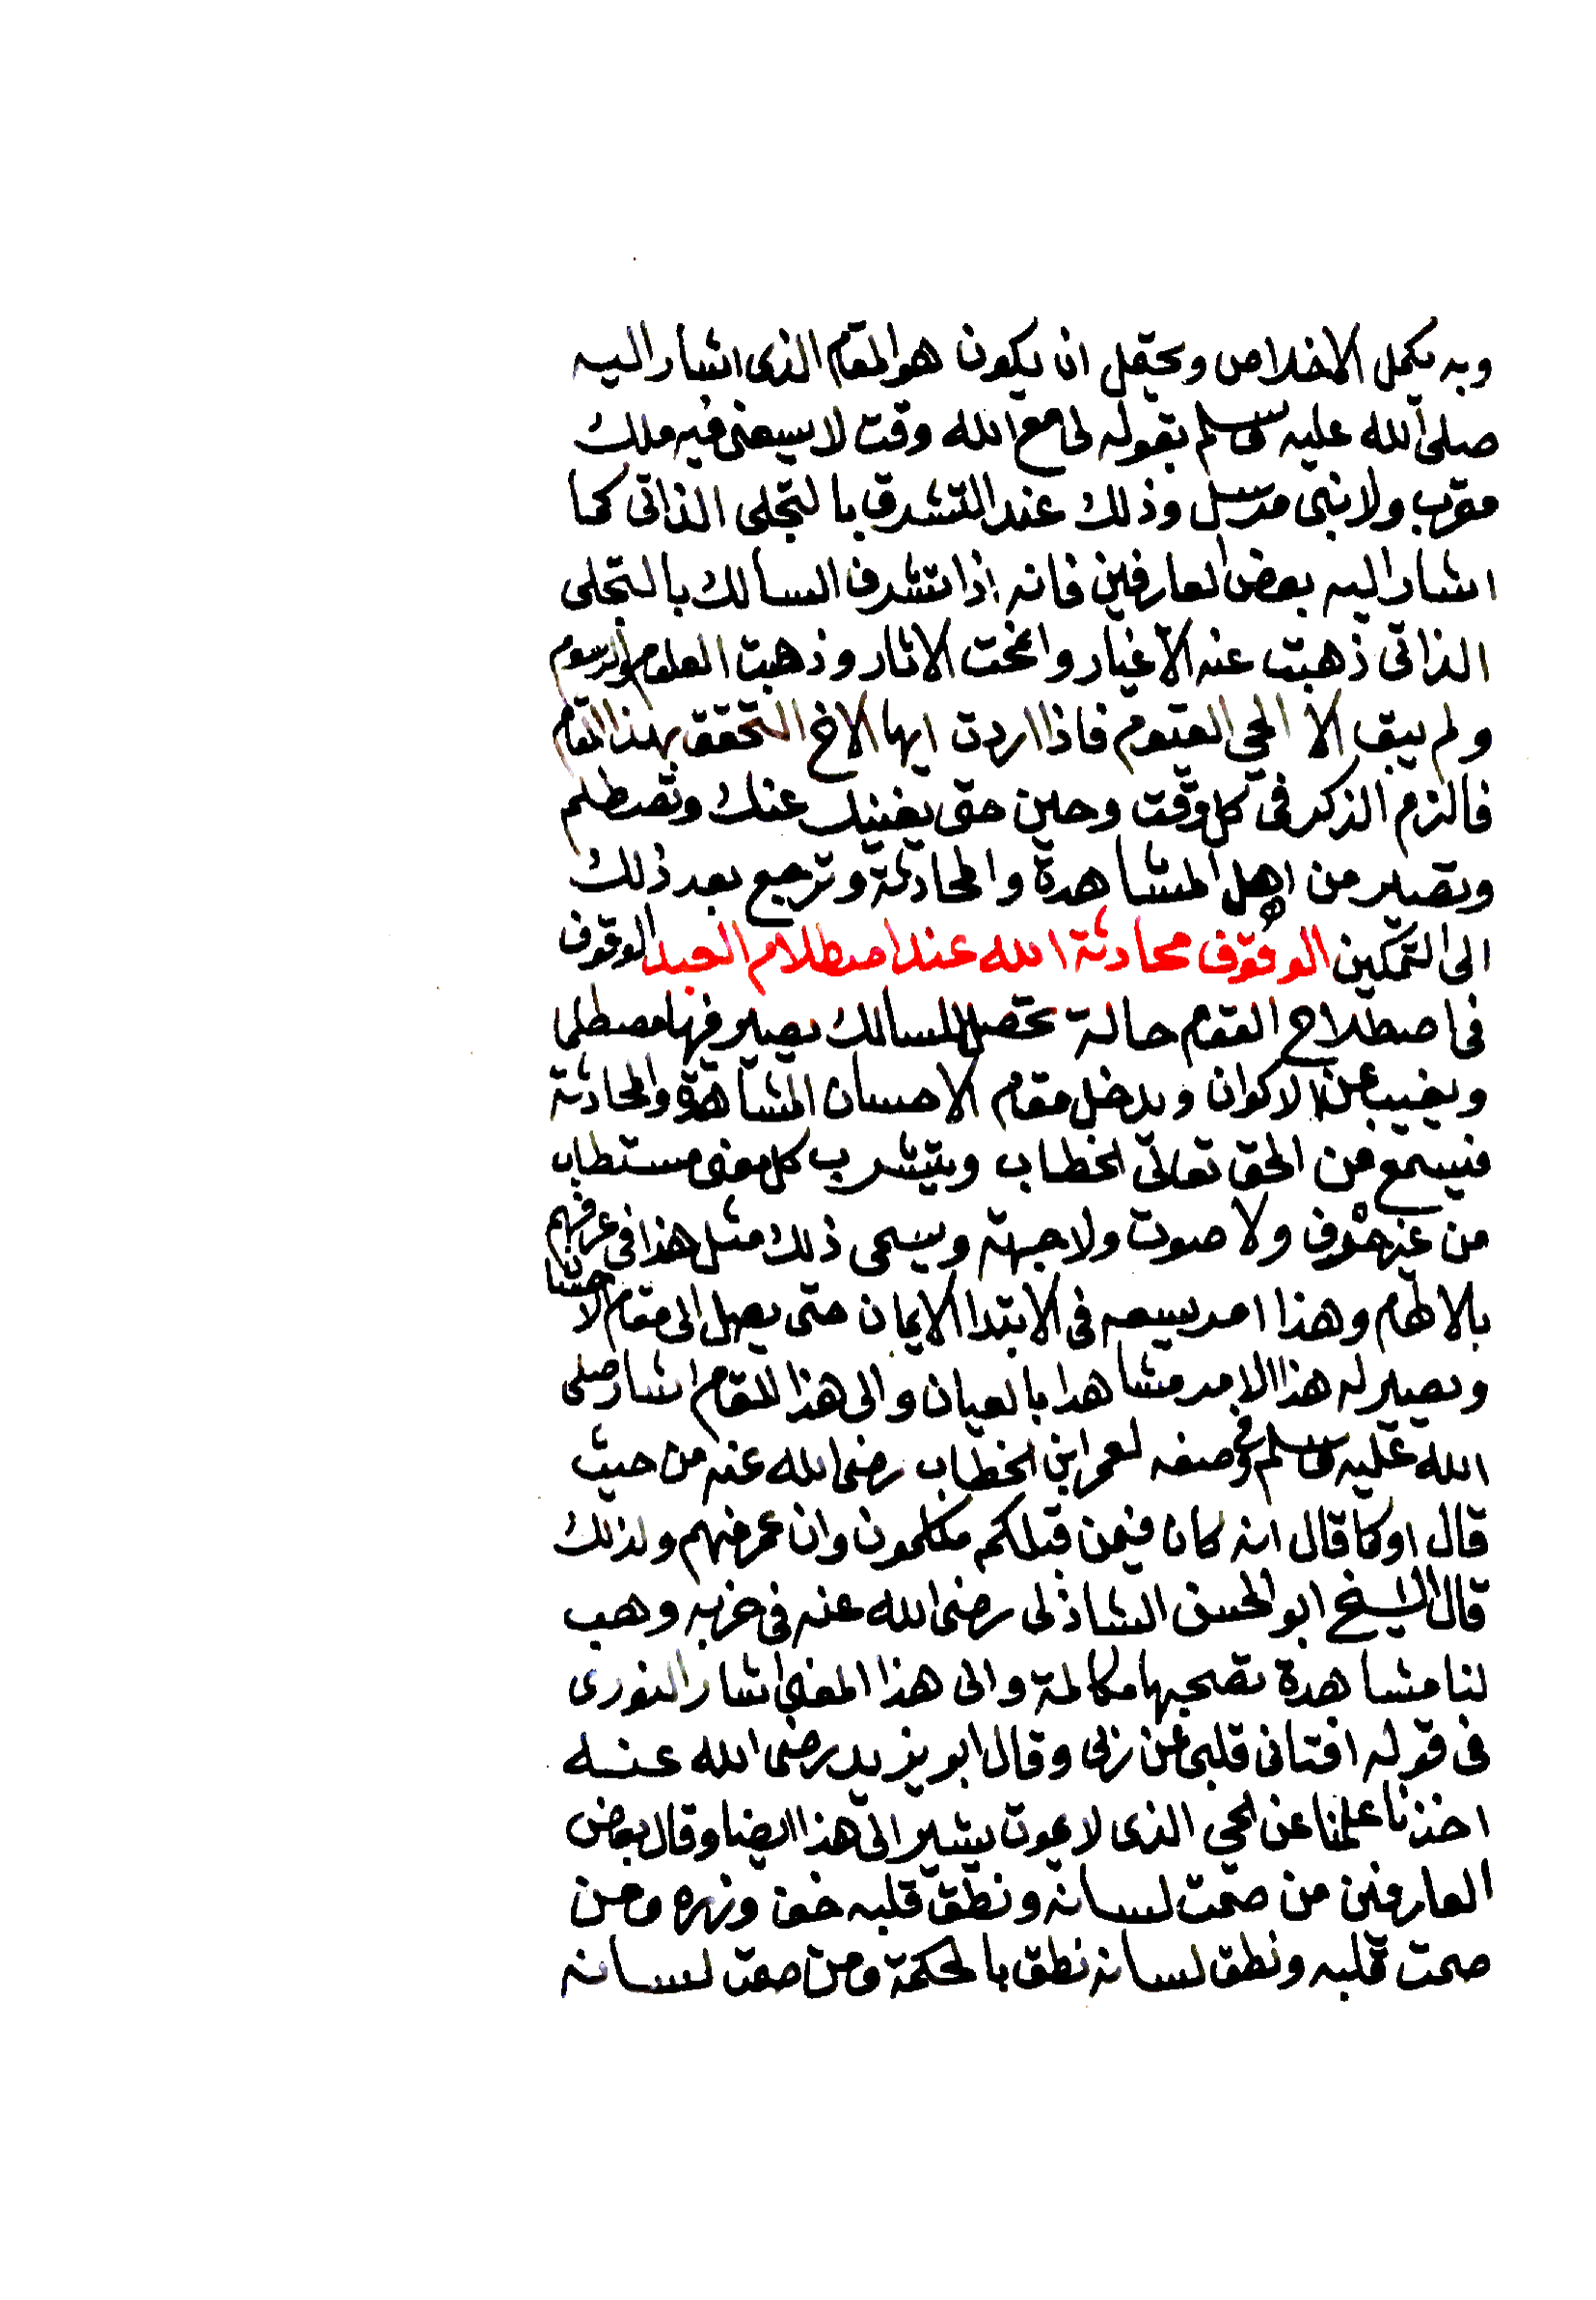 وبه يكمل الاخلاص ويحتمل ان يكون هو المقام الذى اشار اليه
صلى الله عليه وسلم بقوله لى مع الله وقت لا يسعنى فيه ملك
مقرب ولا نبى مرسل وذلك عند التشرق بالتجلى الذاتى كما
اشار اليه بعض العارفين فانه اذا تشرف السالك بالتجلى
الذاتى ذهبت عنه الاغيار وانمحت الاثار وذهبت العلوم والرسوم
ولم يبق الا الحي القيوم فاذا اردت ايها الاخ التحقق بهذا المقام
فالزم الذكر فى كل وقت وحين حتى يغنيك عنك وتصطلم
وتصير من اهل المشاهدة والمحادثة وترجع بعد ذلك
الى التمكين الوقوف محادثة الله عند اصطلام العبد الوقوف
فى اصطلاح القوم حالة تحصل للسالك يصير فيها مصطلما
ويغيب عن الاكوان ويدخل مقام الاحسان المشاهدة والمحادثة
فيسمع من الحق تعالى الخطاب ويتشرب كل معنى مستطاب
من غير حروف ولا صوت ولا جهة ويسمى ذلك مثل هذا فى عرفهم
بالالهام وهذا امر يسعه فى الابتدا الايمان حتى يصل الى مقام الاحسان
ويصير له هذا الامر مشاهدا بالعيان والى هذا المقام اشار صلى
الله عليه وسلم فى وصفه لعمر ابن الخطاب رضى الله عنه من حيث
قال او كما قال انه كان فيمن قبلكم مكلمون وان عمر منهم ولذلك
قال الشيخ ابو الحسن الشاذلى رضى الله عنه فى حزبه وهب
لنا مشاهدة تصحبها مكالمة والى هذا المعنى اشار النورى
فى قوله افتانى قلبى عن ربى وقال ابو يزيد رضى الله عنه
اخذنا علمنا عن الحي الذى لا يموت يشير الى هذا ايضا وقال بعض
العارفين من صمت لسانه ونطق قلبه خف وزره ومن
صمت قلبه ونطق لسانه نطق بالحكمة ومن صمت لسانه